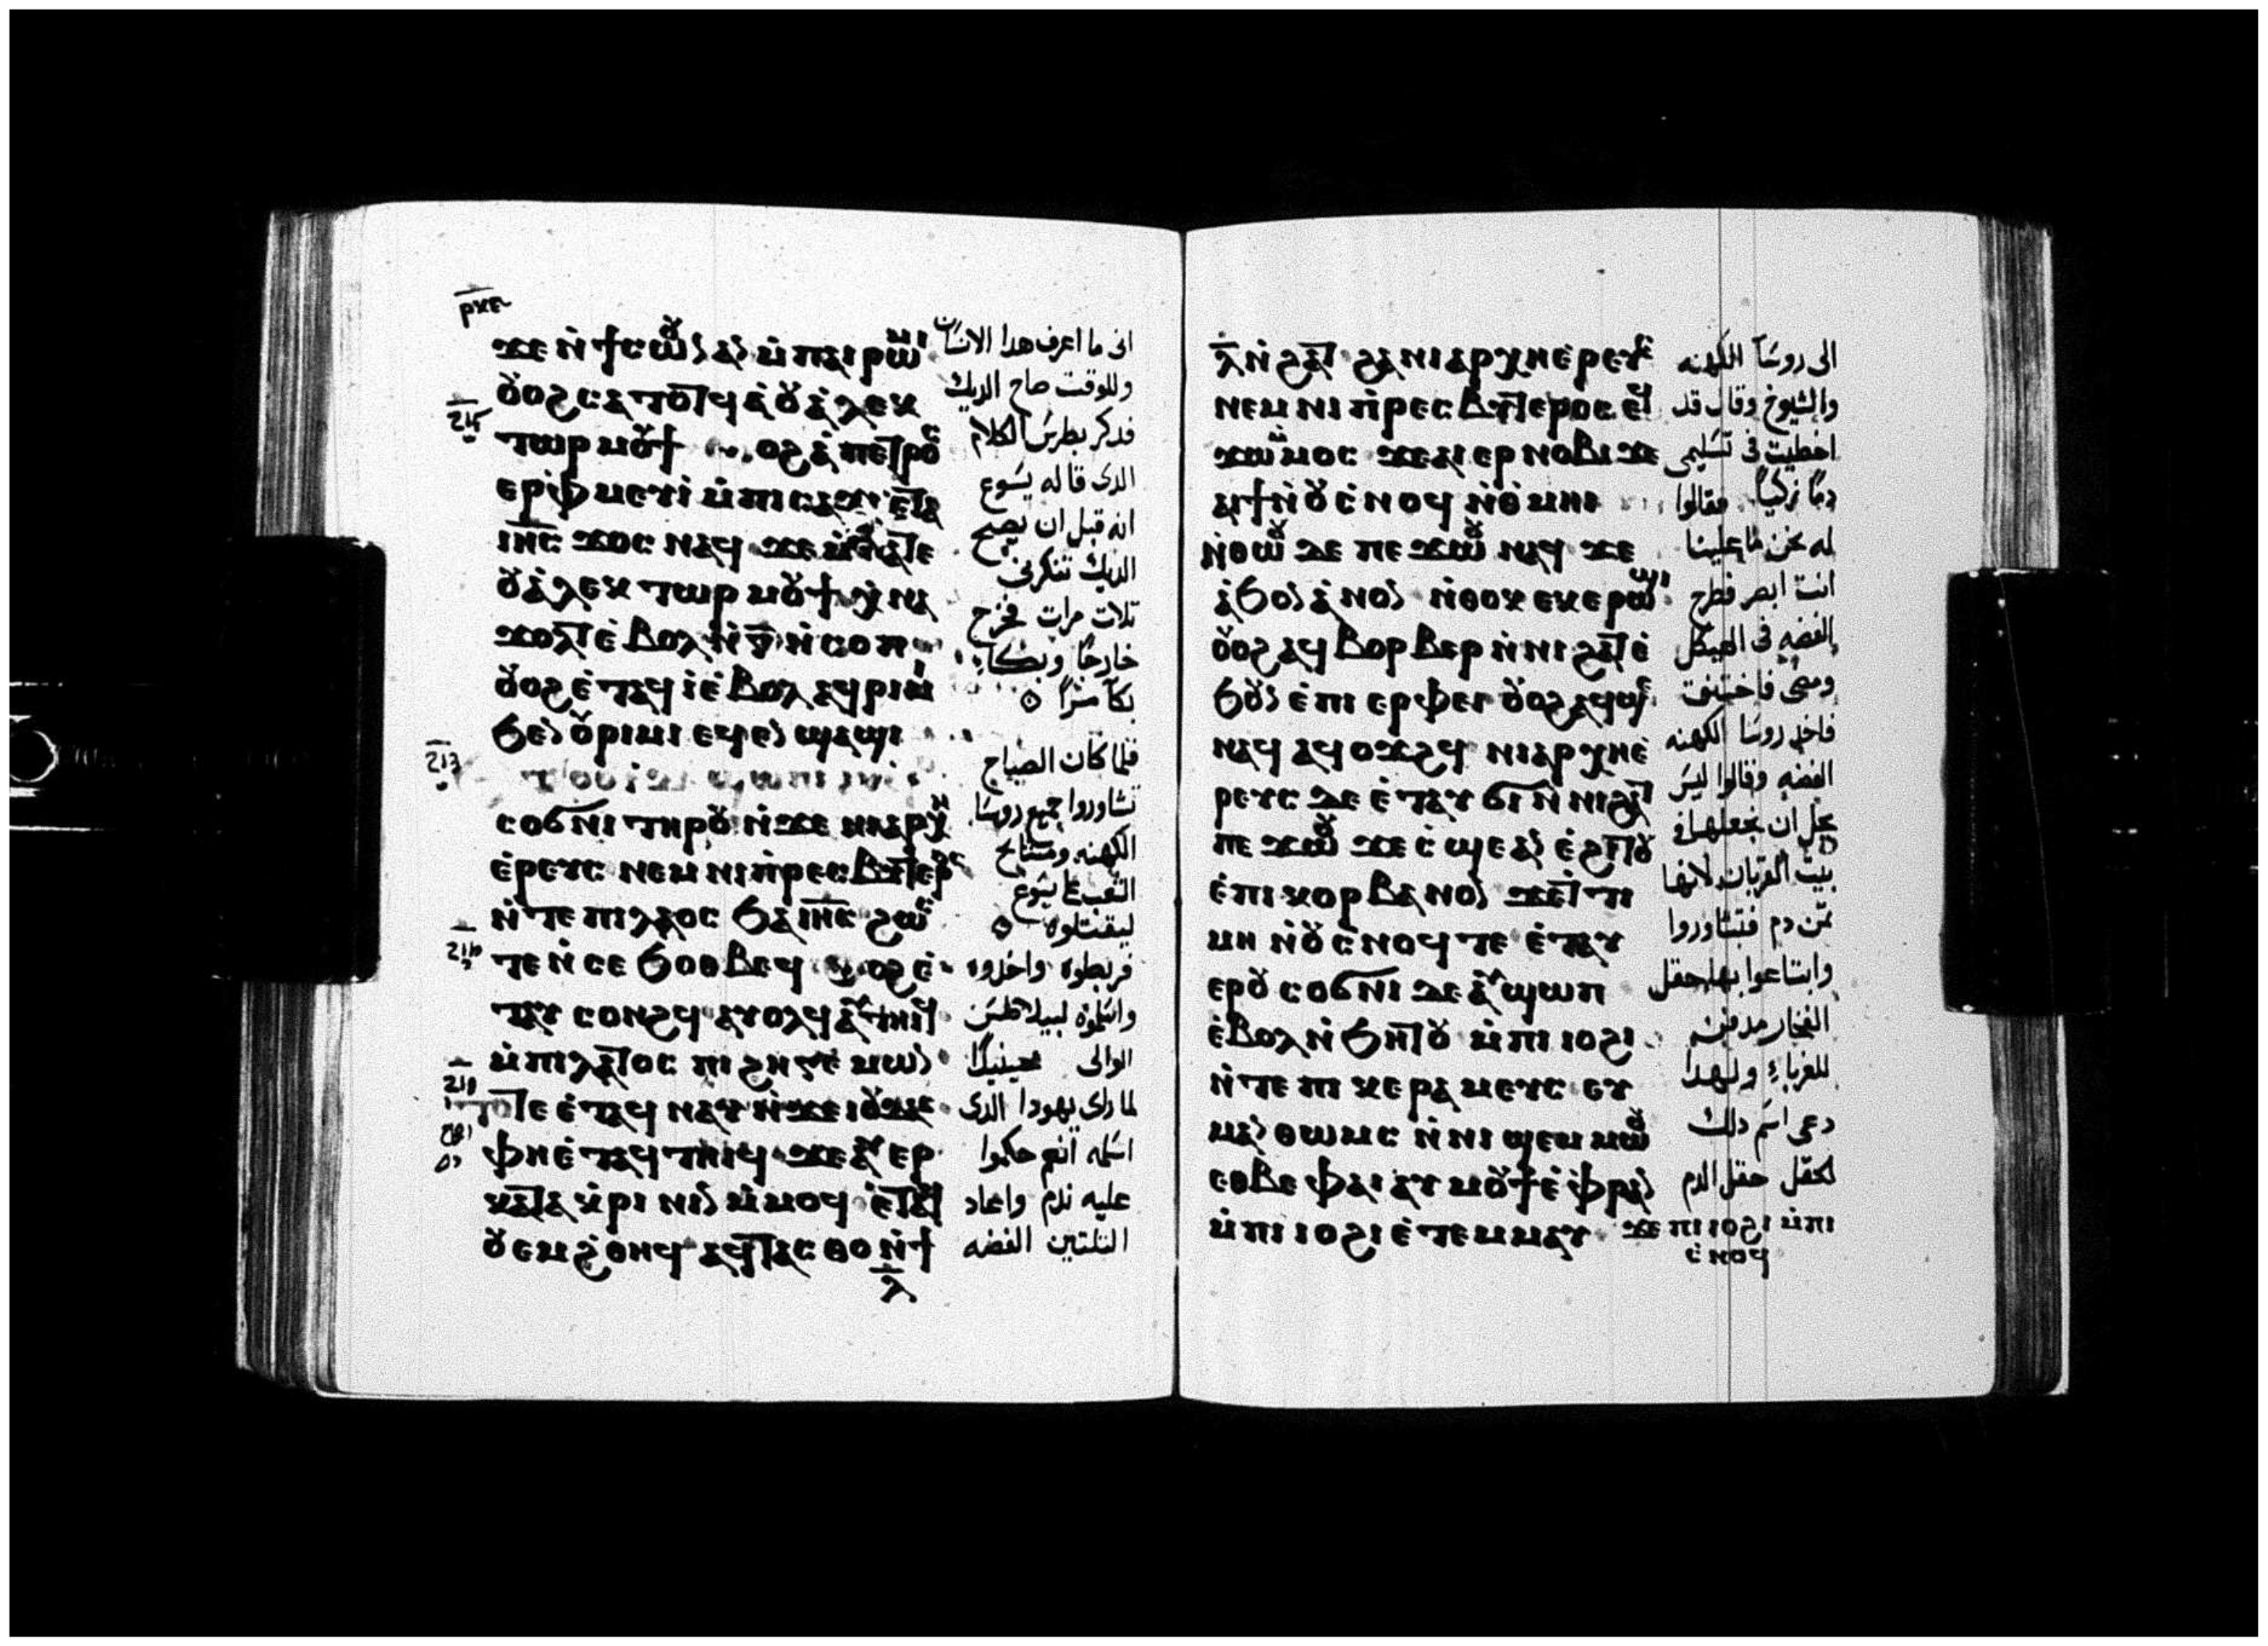 ⲣⲕⲉ
ϫⲉ ⲛ̇ϯⲥⲱⲟⲩⲛ ⲁⲛ ⲙ̇ⲡⲁⲓⲣⲱⲙⲓ
ⲟⲩⲟϩ ⲥⲁⲧⲟⲧϥ ⲁ̇ ⲟⲩⲁ̇ⲗⲉⲕ
ⲧⲱⲣ ⲙⲟⲩϯ ⲟϩ ⲁ̇ ⲡⲉⲧⲣⲟⲥ
ⲉⲣⲫⲙⲉⲩⲓ̇ ⲙ̇ⲡⲓⲥⲁϫⲓ ⲉ̇ⲧⲁ
ⲓⲏⲥ ϫⲟⲥ ⲛⲁϥ ϫⲉ ⲙ̇ⲡⲁⲧⲉ
ⲟⲩⲁ̇ⲗⲉⲕⲧⲱⲣ ⲙⲟⲩϯ ⲭ̇ⲛⲁ
ϫⲟⲗⲧ ⲉ̇ⲃⲟⲗ ⲛ̇ⲅ̅ ⲛ̇ⲥⲟⲡ
ⲟⲩⲟϩ ⲉ̇ⲧⲁϥⲓ̇ ⲉ̇ⲃⲟⲗ ⲁϥⲣⲓⲙⲓ
ϧⲉⲛ ⲟⲩⲣⲓⲙⲓ ⲉϥⲉⲛϣⲁϣⲓ
ⲥⲟϭⲛⲓ ⲧⲏⲣⲟⲩ ⲛ̇ϫⲉ ⲛⲓⲁⲣⲭⲏ
ⲉ̇ⲣⲉⲩⲥ ⲛⲉⲙ ⲛⲓⲡ̇ⲣⲉⲥⲃⲩⲧⲉⲣⲟⲥ
ⲛ̇ⲧⲉ ⲡⲓⲗⲁⲟⲥ ϧⲁ ⲓⲏⲥ ϩⲱⲥ
ⲧⲉ ⲛ̇ⲥⲉ ϧⲟⲑⲃⲉϥ ⲟϩ ⲉ̇
ⲧⲁⲩ ⲥⲟⲛϩϥ ⲁⲩⲟⲗϥ ⲁⲩⲧⲏⲓϥ
ⲙ̇ⲡⲓⲗⲁⲧⲟⲥ ⲡⲓϩⲏⲅⲉⲙⲱⲛ
ⲧⲟⲧⲉ ⲉ̇ⲧⲁϥ ⲛⲁⲩ ⲛ̇ϫⲉ ⲓⲟⲩⲇⲁⲥ
ⲫⲏ ⲉ̇ⲧⲁϥⲧⲏⲓϥ ϫⲉ ⲁⲩⲉⲣ
ⲕⲁⲧⲁⲕ̇ⲣⲓⲛⲓⲛ ⲙ̇ⲙⲟϥ ⲉ̇ⲧⲁ
ⲟⲩⲉⲙϩ̇ⲑⲏϥ ⲁϥⲧⲁⲥⲑⲟ ⲛ̇ϯ
ⲗ̅
انى ما اعرف هدا الانسان
وللوقت صاح الديك
فدكر بطرس الكلام
الدى قاله يسوع
انه قبل ان يصيح
الديك تنكرنى
تلات مرات فخرج
خارجًا وبكا
بكآ مرًا
فلما كان الصباح
تشاوروا جميع روسا
الكهنه ومشايخ
الشعب على يسوع
ليقتلوه
فربطوه واخدوه
واسلموه لبيلاطس
الوالى حينيدًا
لما راى يهودا الدى
اسلمه انهم حكموا
عليه ندم واعاد
التلتين الفضه
ⲗ̅ ⲛ̇ϩⲁⲧ ϩⲁ ⲛⲓⲁⲣⲭⲏⲉ̇ⲣⲉⲩⲥ
ⲛⲉⲙ ⲛⲓⲡ̇ⲣⲉⲥⲃⲩⲧⲉⲣⲟⲥ ⲉϥ
ϫⲱ ⲙ̇ⲙⲟⲥ ϫⲉ ⲁⲓⲉⲣⲛⲟⲃⲓ ϫⲉ
ⲁⲓϯ ⲛ̇ⲟⲩⲥ̇ⲛⲟϥ ⲛ̇ⲑ̇ⲙⲏⲓ
ⲛ̇ⲑⲱⲟⲩ ⲇⲉ ⲡⲉϫⲱⲟⲩ ⲛⲁϥ ϫⲉ
ⲁ̇ϧⲟⲛ ⲁ̇ⲛⲟⲛ ⲛ̇ⲑⲟⲕ ⲉⲕⲉⲣⲱϣⲓ
ⲟⲩⲟϩ ⲁϥⲃⲟⲣⲃⲉⲣ ⲛ̇ⲛⲓϩⲁⲧ ⲉ̇
ϧⲟⲩⲛ ⲉ̇ⲡⲓⲉⲣⲫⲉⲓ ⲟⲩⲟϩ ⲁϥϣⲉ
ⲛⲁϥ ⲁϥⲟϫϩϥ ⲛⲓⲁⲣⲭⲏⲉ̇
ⲣⲉⲩⲥ ⲇⲉ ⲉ̇ⲧⲁⲩϭⲓ ⲛ̇ⲛⲓϩⲁⲧ
ⲡⲉϫⲱⲟⲩ ϫⲉ ⲥ̇ϣⲉ ⲁⲛ ⲉ̇ϩⲓⲧⲟⲩ
ⲉ̇ⲡⲓⲕⲟⲣⲃⲁⲛⲟⲛ ϫⲉ ⲧⲓ
ⲙⲏ ⲛ̇ⲟⲩⲥ̇ⲛⲟϥ ⲧⲉ ⲉ̇ⲧⲁⲩ
ⲉⲣⲟⲩⲥⲟϭⲛⲓ ⲇⲉ ⲁⲩϣⲱⲡ
ⲉ̇ⲃⲟⲗ ⲛ̇ϧⲏⲧⲟⲩ ⲙ̇ⲡⲓⲓⲟϩⲓ
ⲛ̇ⲧⲉ ⲡⲓⲕⲉⲣⲁⲙⲉⲩⲥ ⲉⲩ
ⲙⲁⲛⲑⲱⲙⲥ ⲛ̇ⲛⲓϣⲉⲙⲙⲱⲟⲩ
ⲉⲑⲃⲉ ⲫⲁⲓ ⲁⲩⲙⲟⲩϯ ⲉ̇ⲫⲣⲁⲛ
ⲙ̇ⲡⲓⲓⲟϩⲓ ⲉ̇ⲧⲉⲙⲙⲁⲩ ϫⲉ ⲡⲓⲓⲟϩⲓ ⲙ̇ⲡⲓ
ⲥ̇ⲛⲟϥ
الى روسآ الكهنه
والشيوخ وقال قد
اخطيت فى تسليمى
دمًا زكيًا فقالوا
له نحن ما علينا
انت ابصر فطرح
الفضه فى الهيكل
ومضى فاختنق
فاخد روسا الكهنه
الفضه وقالوا ليس
يحل ان نجعلها فى
بيت القربان لانها
تمن دم فتشاوروا
وابتاعوا بها حقل
الفخار مدفنه
للغربآء ولهدا
دعى اسم دلك
الحقل حقل الدم